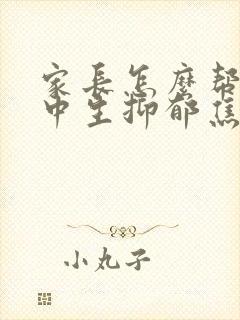 家長怎麼幫
中生抑郁焦
小丸子